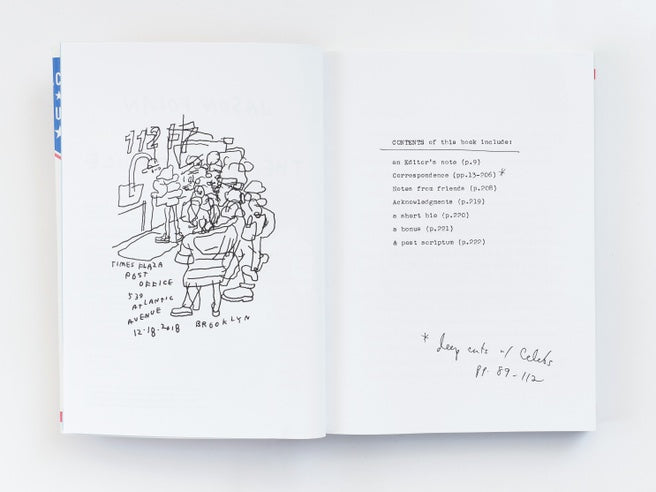 C
U
112
TIMES PLAZA
POST
OFFICE
539
ATLANTIC
AVENUE
12·18·2018 BROOKLYN
CONTENTS of this book include:
an Editor's note (p.9)
Correspondence (pp.13-206) *
Notes from friends (p.208)
Acknowledgments (p.219)
a short bio (p.220)
a bonus (p.221)
& post scriptum (p.222)
* deep cuts w/ Celebs
pp. 89-112